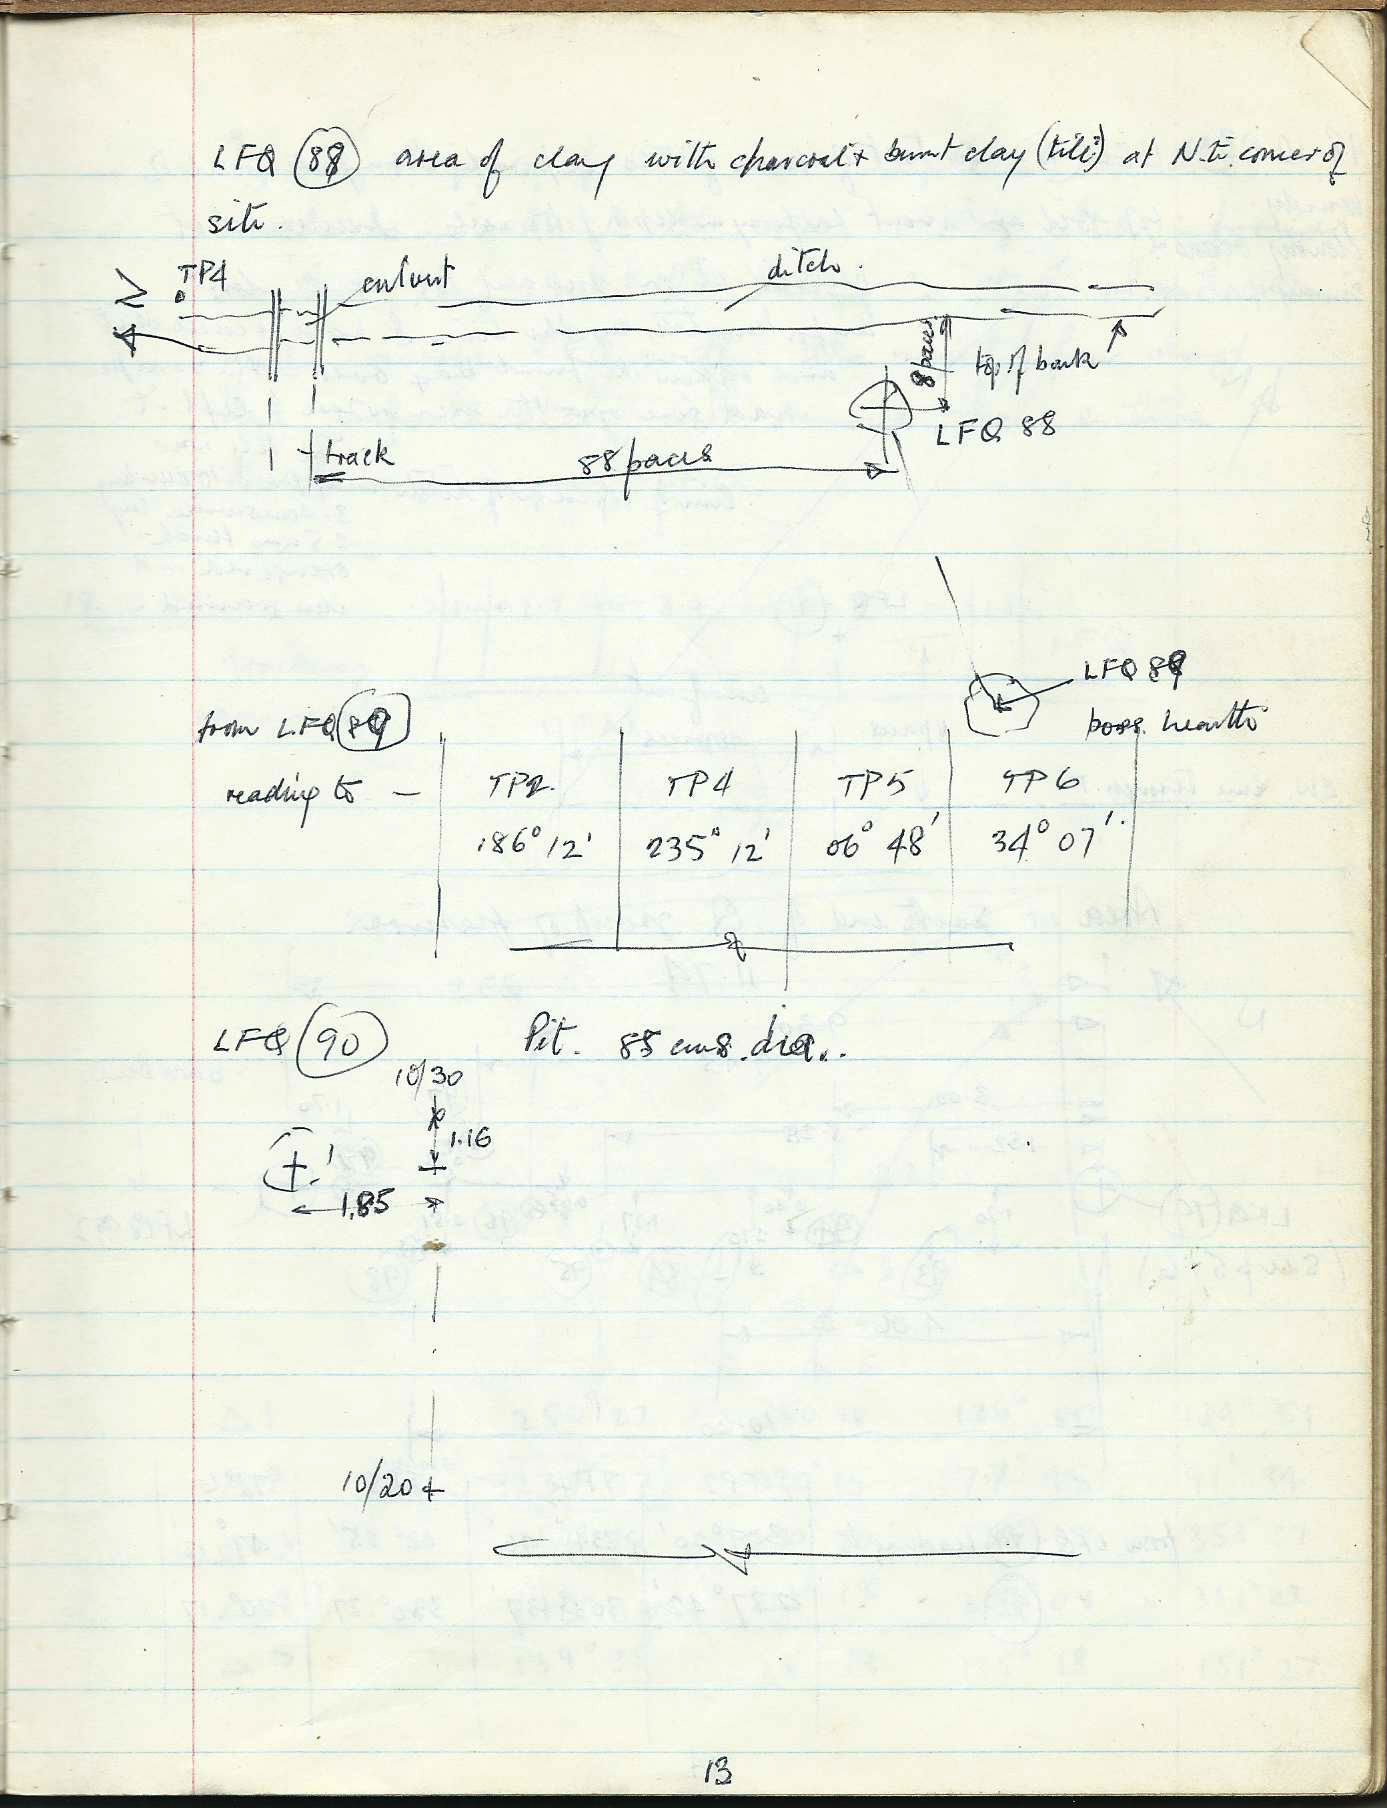 LFQ 88 area of clay with charcoal + burnt clay (tile?) at N.E. corner of
site.
N
TP4
culvert
ditch.
8 paces
top of bank
LFQ 88
track
88 paces
LFQ 89
poss. hearth
from LFQ 89
reading to –
TP2 TP4 TP5 TP6
186° 12' 235° 12' 06° 48' 34° 07'
LFQ 90 Pit. 85 cms. dia..
10/30
1.16
1.85
10/20 +
13